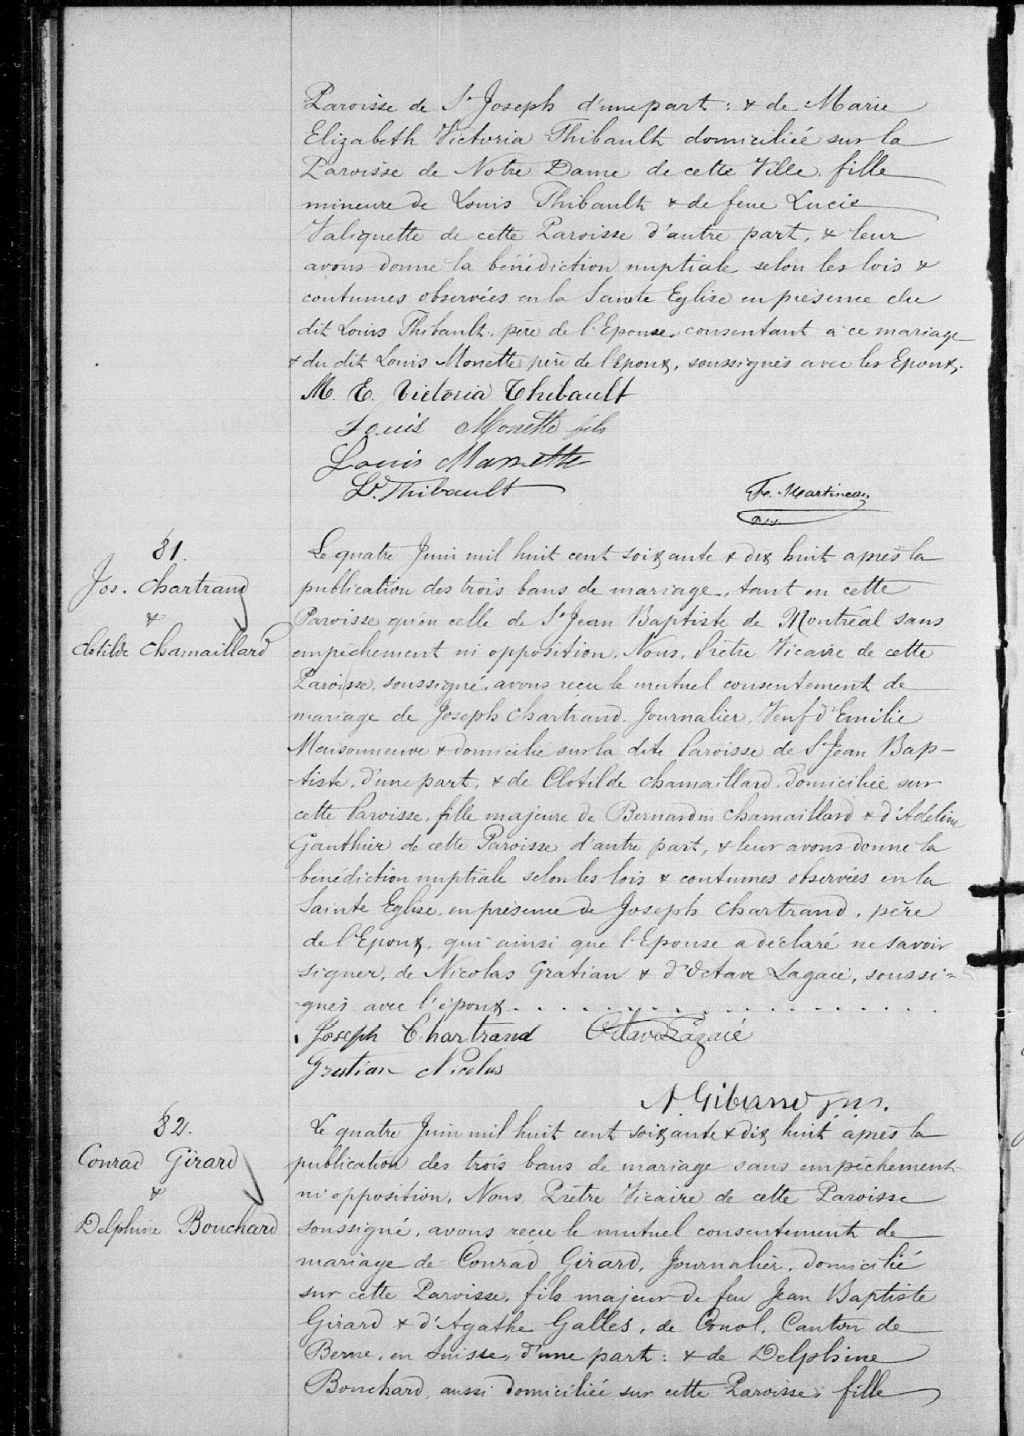 Paroisse de St Joseph d'une part : & de Marie
Elizabeth Victoria Thibault domiciliée sur la
Paroisse de Notre Dame de cette Ville, fille
mineure de Louis Thibault & de feue Lucie
Valiquette de cette Paroisse d'autre part, & leur
avons donné la bénédiction nuptiale selon les lois &
coutumes observées en la Sainte Eglise en présence du
dit Louis Thibault, père de l'Epouse, consentant à ce mariage
& du dit Louis Monette père de l'Epoux, soussignés avec les Epoux.
M. E. Victoria Thibault
Louis Monette fils
Louis Monette
Ls. Thibault
Fx. Martineau
Ptre
81.
Jos. Chartrand
&
Clotilde Chamaillard
Le quatre Juin mil huit cent soixante & dix huit après la
publication des trois bans de mariage, tant en cette
Paroisse qu'en celle de St Jean Baptiste de Montréal sans
empêchement ni opposition, Nous, Prêtre Vicaire de cette
Paroisse, soussigné, avons reçu le mutuel consentement de
mariage de Joseph Chartrand, Journalier, Veuf d'Emilie
Maisonneuve & domicilié sur la dite Paroisse de St Jean Bap-
-tiste, d'une part, & de Clotilde Chamaillard, domiciliée sur
cette Paroisse, fille majeure de Bernardin Chamaillard & d'Adeline
Gauthier de cette Paroisse d'autre part, & leur avons donné la
bénédiction nuptiale selon les lois & coutumes observées en la
Sainte Eglise, en présence de Joseph Chartrand, père
de l'Epoux, qui ainsi que l'Epouse a déclaré ne savoir
signer, de Nicolas Gratian & d'Octave Lagacé, soussi-
gnés avec l'époux . . . . . . . . . . . . . . . .
Joseph Chartrand Octave Lagacé
Gratian Nicolas
A. Giband ptr.
82.
Conrad Girard
&
Delphine Bouchard
Le quatre Juin mil huit cent soixante & dix huit après la
publication des trois bans de mariage sans empêchement
ni opposition, Nous Prêtre Vicaire de cette Paroisse
soussigné, avons reçu le mutuel consentement de
mariage de Conrad Girard, Journalier, domicilié
sur cette Paroisse, fils majeur de feu Jean Baptiste
Girard & d'Agathe Galles, de Canton de
Berne, en Suisse, d'une part : & de Delphine
Bouchard, aussi domiciliée sur cette Paroisse, fille